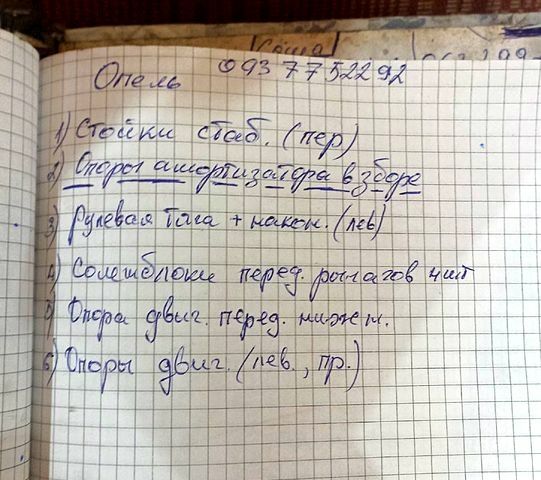 Саша
Опель 093 7752292
1) Стойки стаб. (пер)
2) Опоры амортизатора в зборе
3) Рулевая тяга + након. (лев)
4) Солешблоки перед. рычагов 4шт
5) Опора двиг. перед. нижн.
6) Опоры двиг. (лев., пр.)